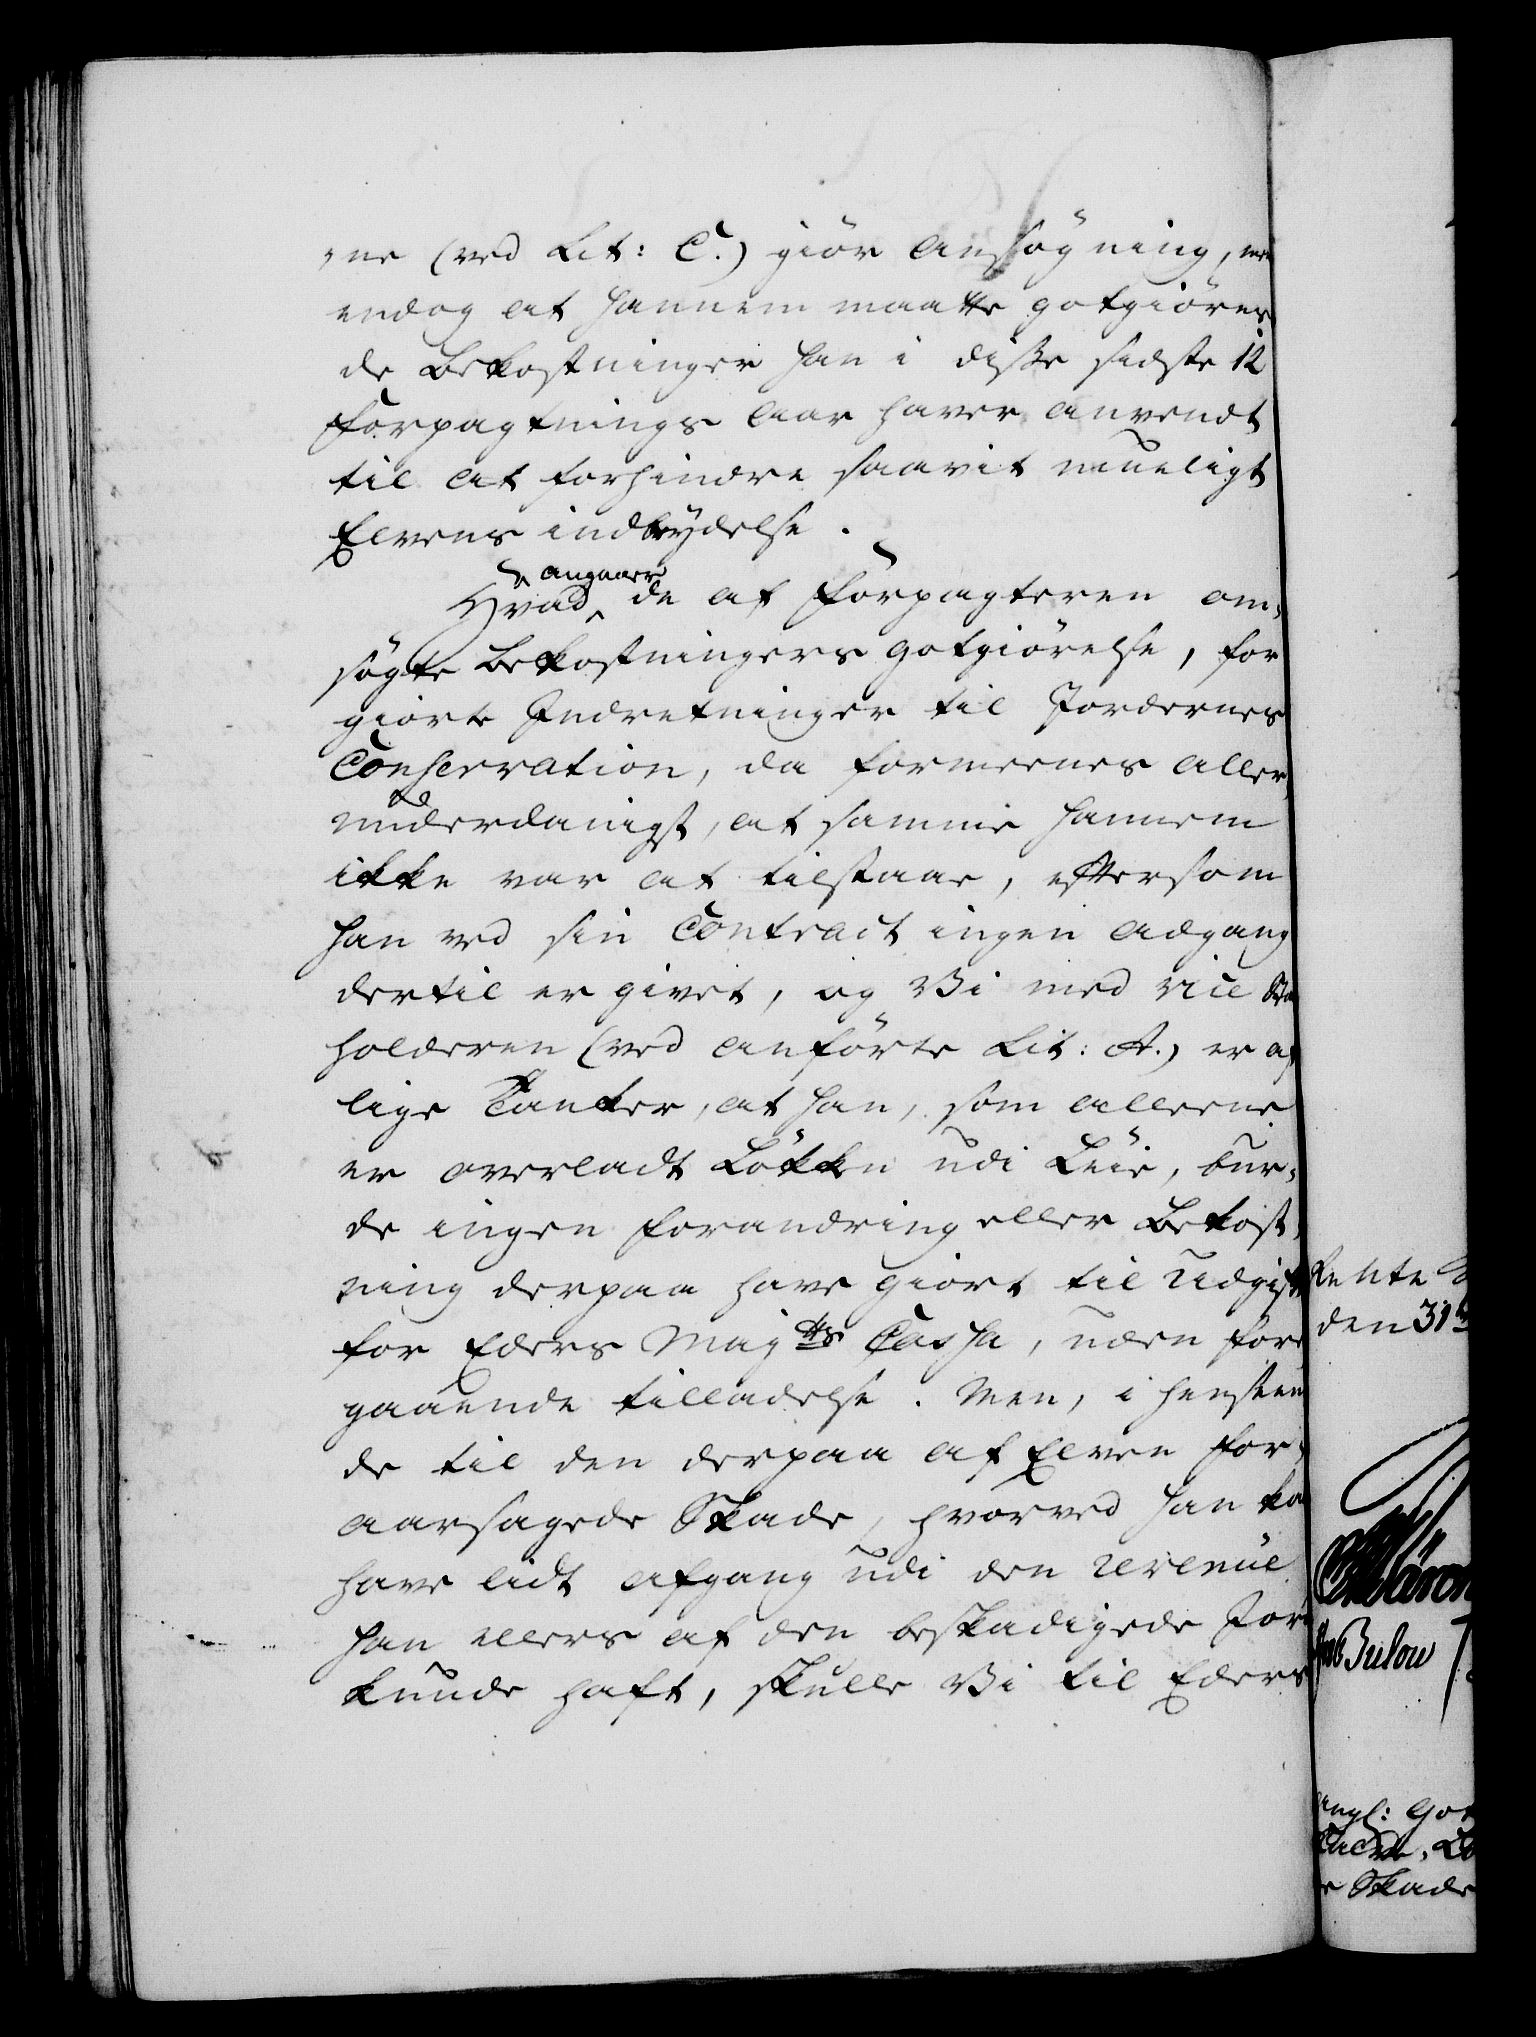 ne (ved Lit: C.) giør Ansøgning, men
endog at hannem maatte gotgiøres
de Bekostninger han i disse sidste 12
Forpagtnings Aar haver anvendt
til at forhindre saavit mueligt
Elvens indbrydelse.
Hvad angaaer de af Forpagteren om-
søgte Bekostningers gotgiørelse, for
giorte Indretninger til Jordernes
Conservation, da formeenes aller-
underdanigst, at samme hannem
ikke var at tilstaae, eftersom
han ved sin Contract ingen adgang
dertil er givet, og Vi med Vice Stat
holderen (ved anførte Lit: A.) er af
lige Tanker, at han, som alleene
er overladt Løkken udi Leie, bur-
de ingen forandring eller Bekost-
ning derpaa have giort til Udgift
for Eders Maytts Cassa, uden fore
gaaende tilladelse. Men, i henseen
de til den derpaa af Elven for-
aarsagede Skade, hvorved han kan
have lidt afgang udi den Revenüe
han ellers af den beskadigede Jord
kunde haft, skulle Vi til Eders
Rente
den 31te
Bulow
angl: Got
Skade